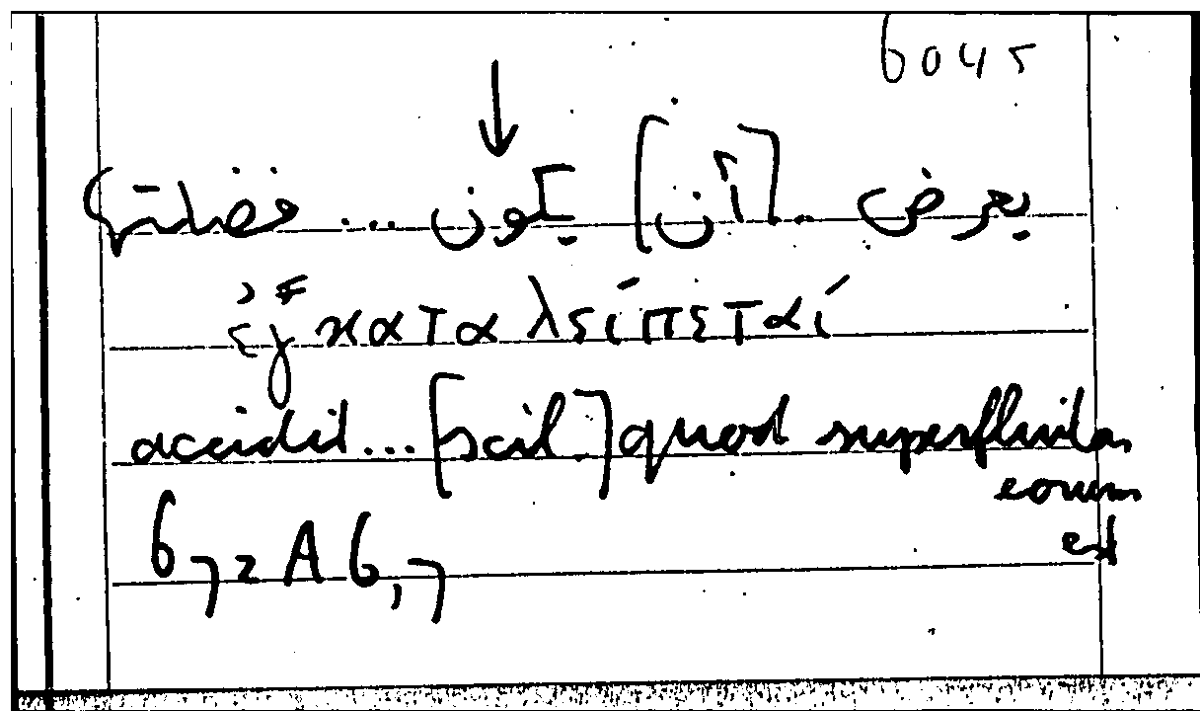 6045
↓
يعرض ... [أن] يكون ... فضلتها
ἐγκαταλείπεταί
accidit... [scil.] quod superfluitas
eorum
est
672 A 6,7